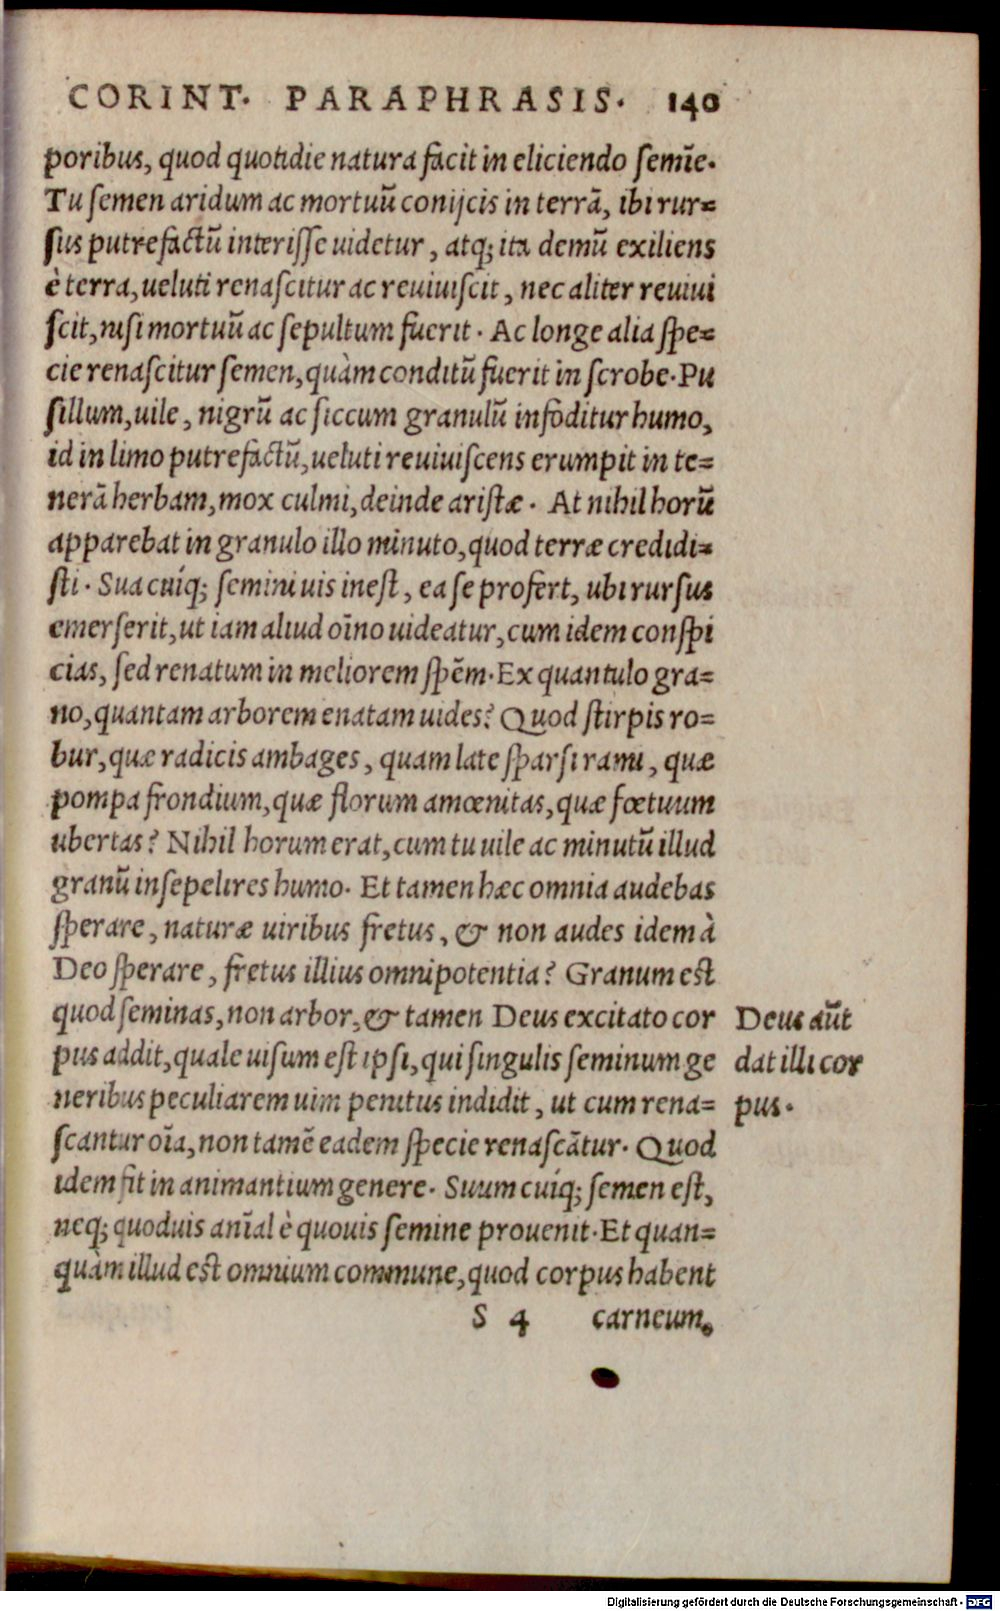 CORINT. PARAPHRASIS. 140
poribus, quod quotidie natura facit in eliciendo semīe.
Tu semen aridum ac mortuū conijcis in terrā, ibi rur=
sus putrefactū interisse uidetur, atq; ita demū exiliens
è terra, ueluti renascitur ac reuiuiscit, nec aliter reuiui
scit, nisi mortuū ac sepultum fuerit. Ac longe alia spe=
cie renascitur semen, quàm conditū fuerit in scrobe. Pu
sillum, uile, nigrū ac siccum granulū infōditur humo,
id in limo putrefactū, ueluti reuiuiscens erumpit in te=
nerā herbam, mox culmi, deinde aristæ. At nihil horū
apparebat in granulo illo minuto, quod terræ credidi=
sti. Sua cuíq; semini uis inest, ea se profert, ubi rursus
emerserit, ut iam aliud oīno uideatur, cum idem conspi
cias, sed renatum in meliorem spēm. Ex quantulo gra=
no, quantam arborem enatam uides? Quod stirpis ro=
bur, quæ radicis ambages, quam late sparsi rami, quæ
pompa frondium, quæ florum amœnitas, quæ fœtuum
ubertas? Nihil horum erat, cum tu uile ac minutū illud
granū insepelires humo. Et tamen hæc omnia audebas
sperare, naturæ uiribus fretus, & non audes idem à
Deo sperare, fretus illius omnipotentia? Granum est
quod seminas, non arbor, & tamen Deus excitato cor
pus addit, quale uisum est ipsi, qui singulis seminum ge
neribus peculiarem uim penitus indidit, ut cum rena=
scantur oīa, non tamē eadem specie renascātur. Quod
idem fit in animantium genere. Suum cuíq; semen est,
neq; quoduis anīal è quouis semine prouenit. Et quan=
quàm illud est omnium commune, quod corpus habent
S 4 carneum,
Deus aūt
dat illi cor
pus.
Digitalisierung gefördert durch die Deutsche Forschungsgemeinschaft - DFG